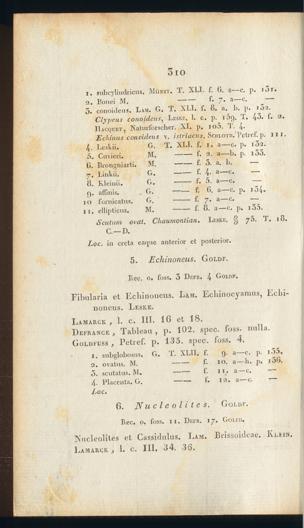 310
1. subcylindricus, Münst. T. XLI. f. 6. a—c. p. 131.
2. Bonei M. —— f. 7. a—c. —
3. conoideus. Lam. G. T. XLI. f. 8. a. b. p. 132.
Clypeus conoideus, Leske, l. c. p. 159. T. 43. f. 2.
Hacquet, Naturforscher. XI. p. 105. T. 4.
Echinus conoideus v. istriacus, Schloth. Petref. p. 111.
4. Leskii. G. T. XLII. f. 1. a—c. p. 132.
5. Cuvieri. M. —— f. 2. a—b. p. 133.
6. Brongniarti. M. —— f. 3. a. b. —
7. Linkii. G. —— f. 4. a—c. —
8. Kleinii. G. —— f. 5. a—c. —
9. affinis. G. —— f. 6. a—c. p. 134.
10 fornicatus. G. —— f. 7. a—c. —
11. ellipticus. M. —— f. 8. a—c. p. 135.
Scutum ovat. Chaumontian. Leske. § 75. T. 18.
C.—D.
Loc. in creta eaque anterior et posterior.
5. Echinoneus. Goldf.
Rec. 0. foss. 3 Defr. 4 Goldf.
Fibularia et Echinoneus. Lam. Echinocyamus, Echi-
noneus. Leske.
Lamarck, l. c. III. 16 et 18.
Defrance, Tableau, p. 102. spec. foss. nulla.
Goldfuss, Petref. p. 135. spec. foss. 4.
1. subglobosus. G. T. XLII. f. 9. a—c. p. 135.
2. ovatus. M. —— f. 10. a—b. p. 136.
3. scutatus. M. —— f. 11. a—c. —
4. Placenta. G. —— f. 12. a—c. —
Loc.
6. Nucleolites. Goldf.
Rec. 0. foss. 11. Defr. 17. Goldf.
Nucleolites et Cassidulus. Lam. Brissoideae. Klein.
Lamarck, l. c. III. 34. 36.